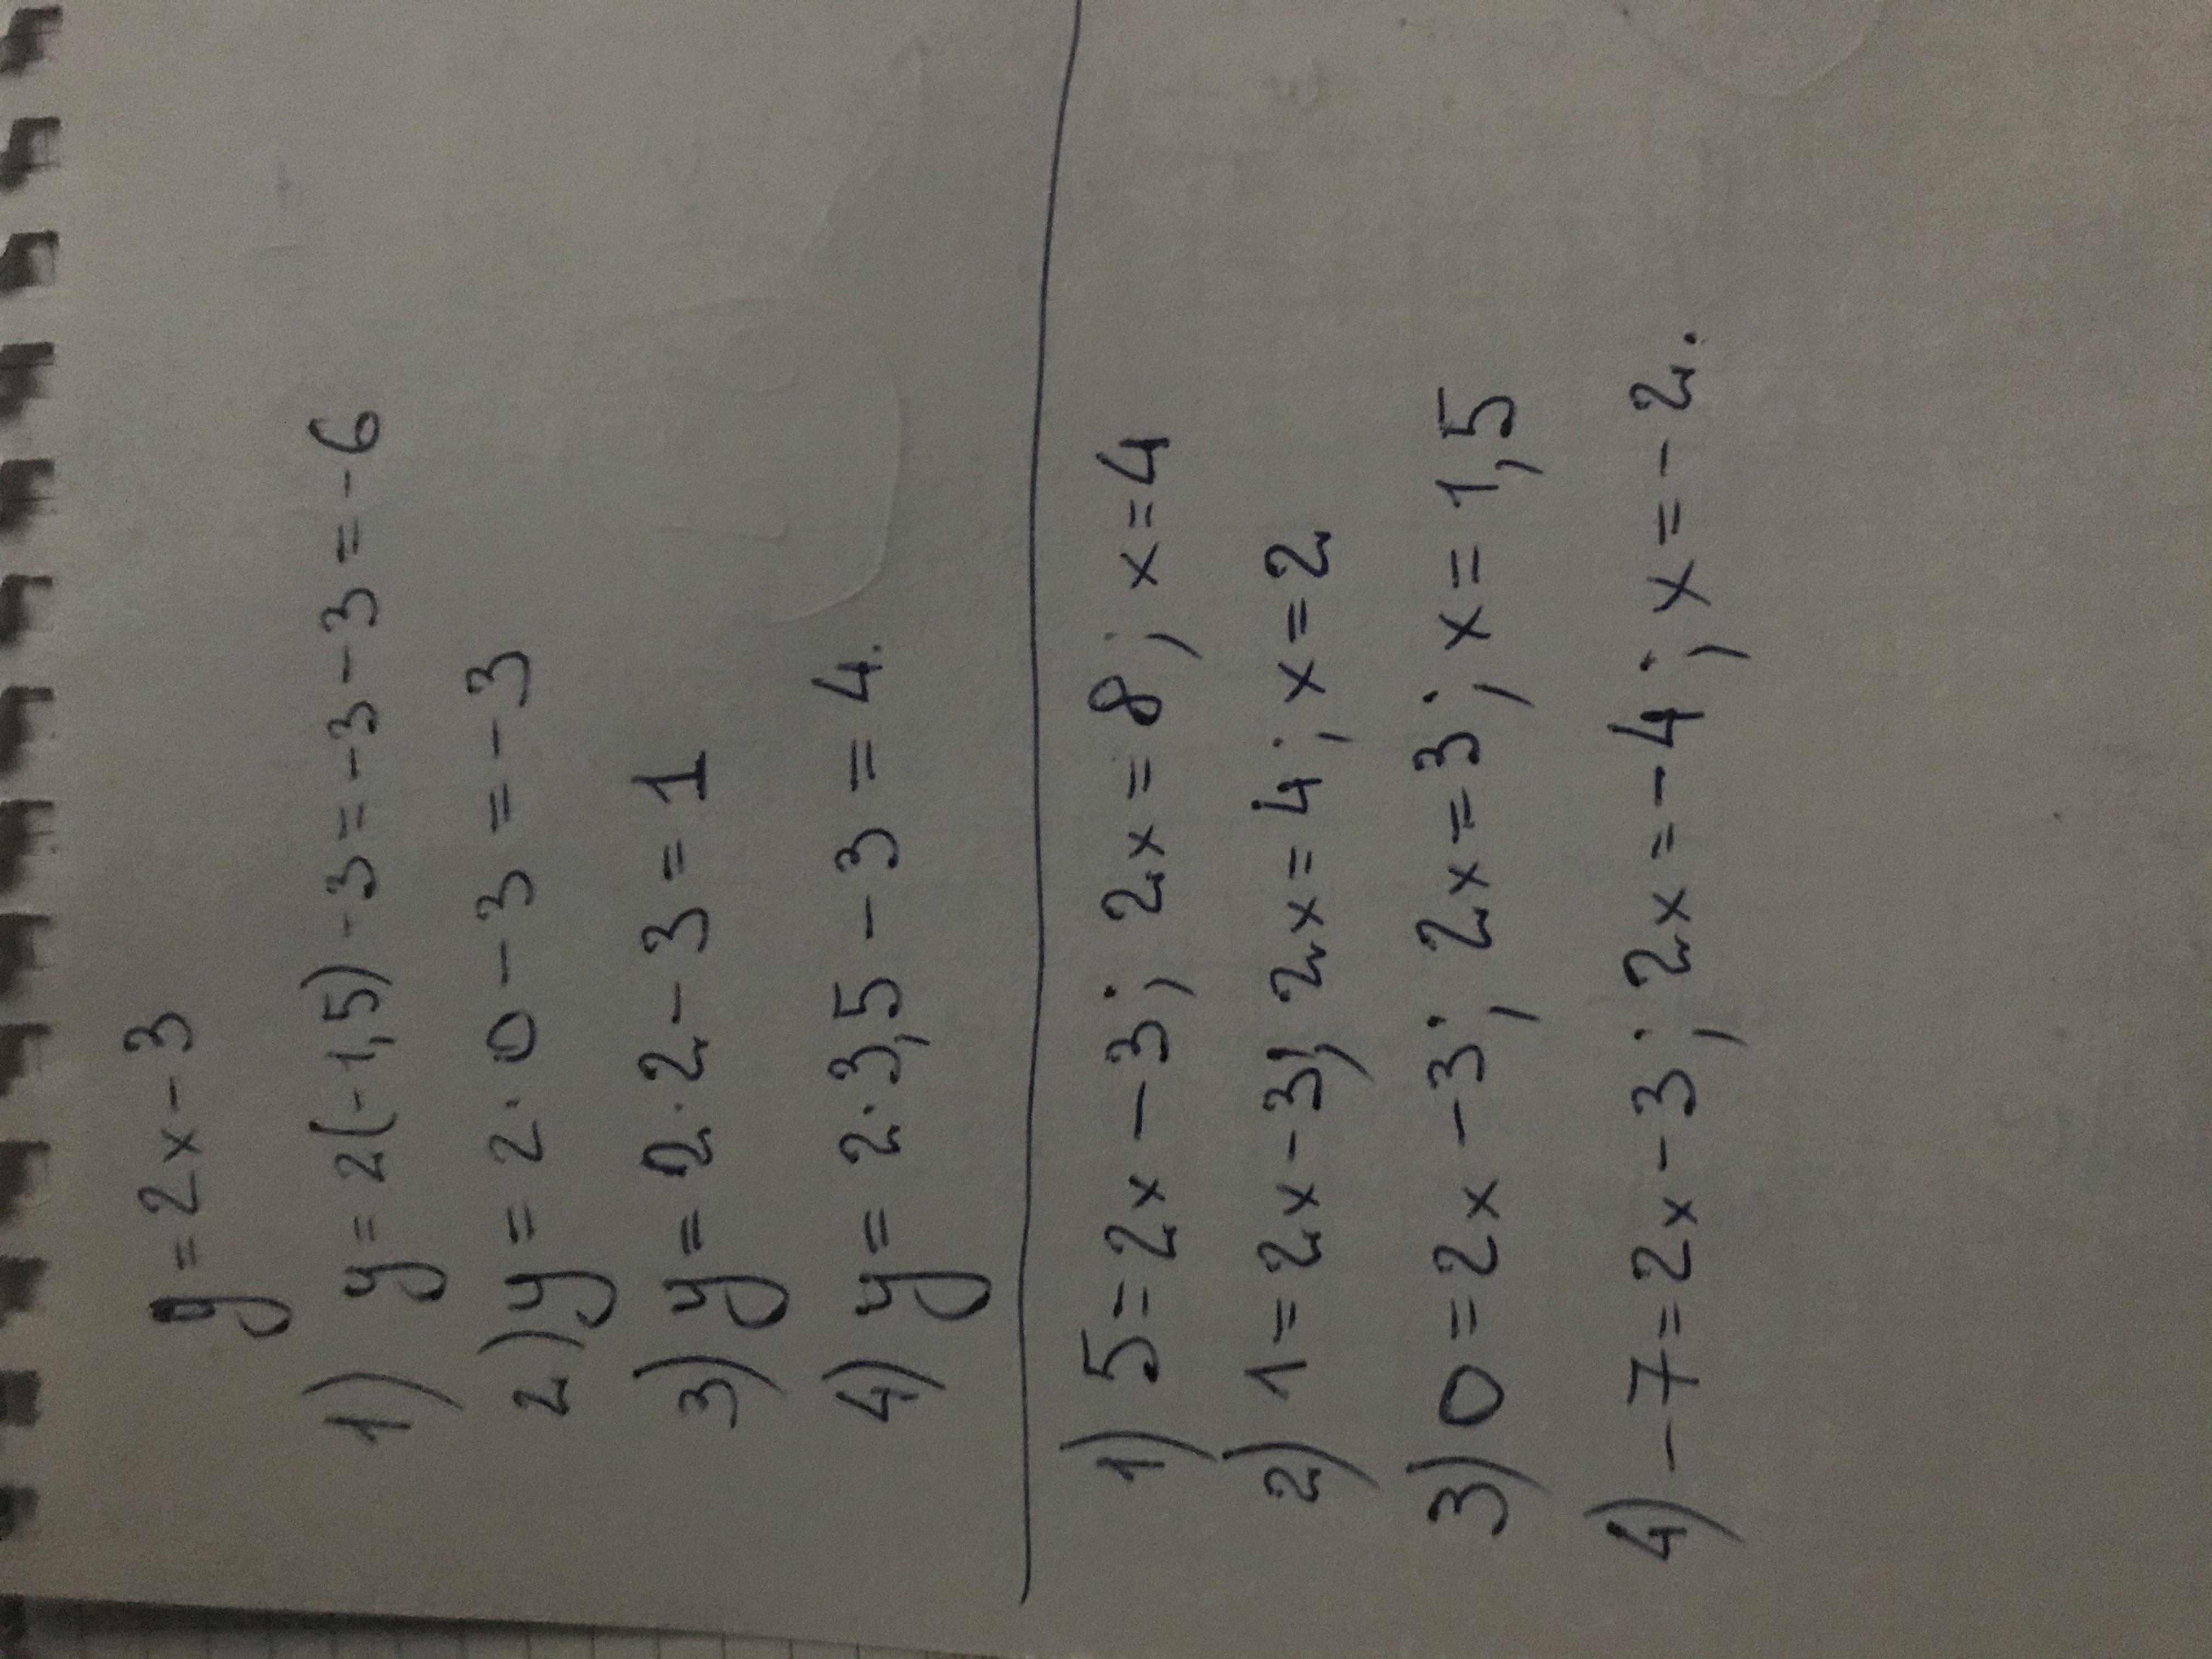 y = 2x - 3
1) y = 2(-1,5) - 3 = -3 - 3 = -6
2) y = 2 · 0 - 3 = -3
3) y = 2 · 2 - 3 = 1
4) y = 2 · 3,5 - 3 = 4.
1) 5 = 2x - 3; 2x = 8; x = 4
2) 1 = 2x - 3; 2x = 4; x = 2
3) 0 = 2x - 3; 2x = 3; x = 1,5
4) -7 = 2x - 3; 2x = -4; x = -2.